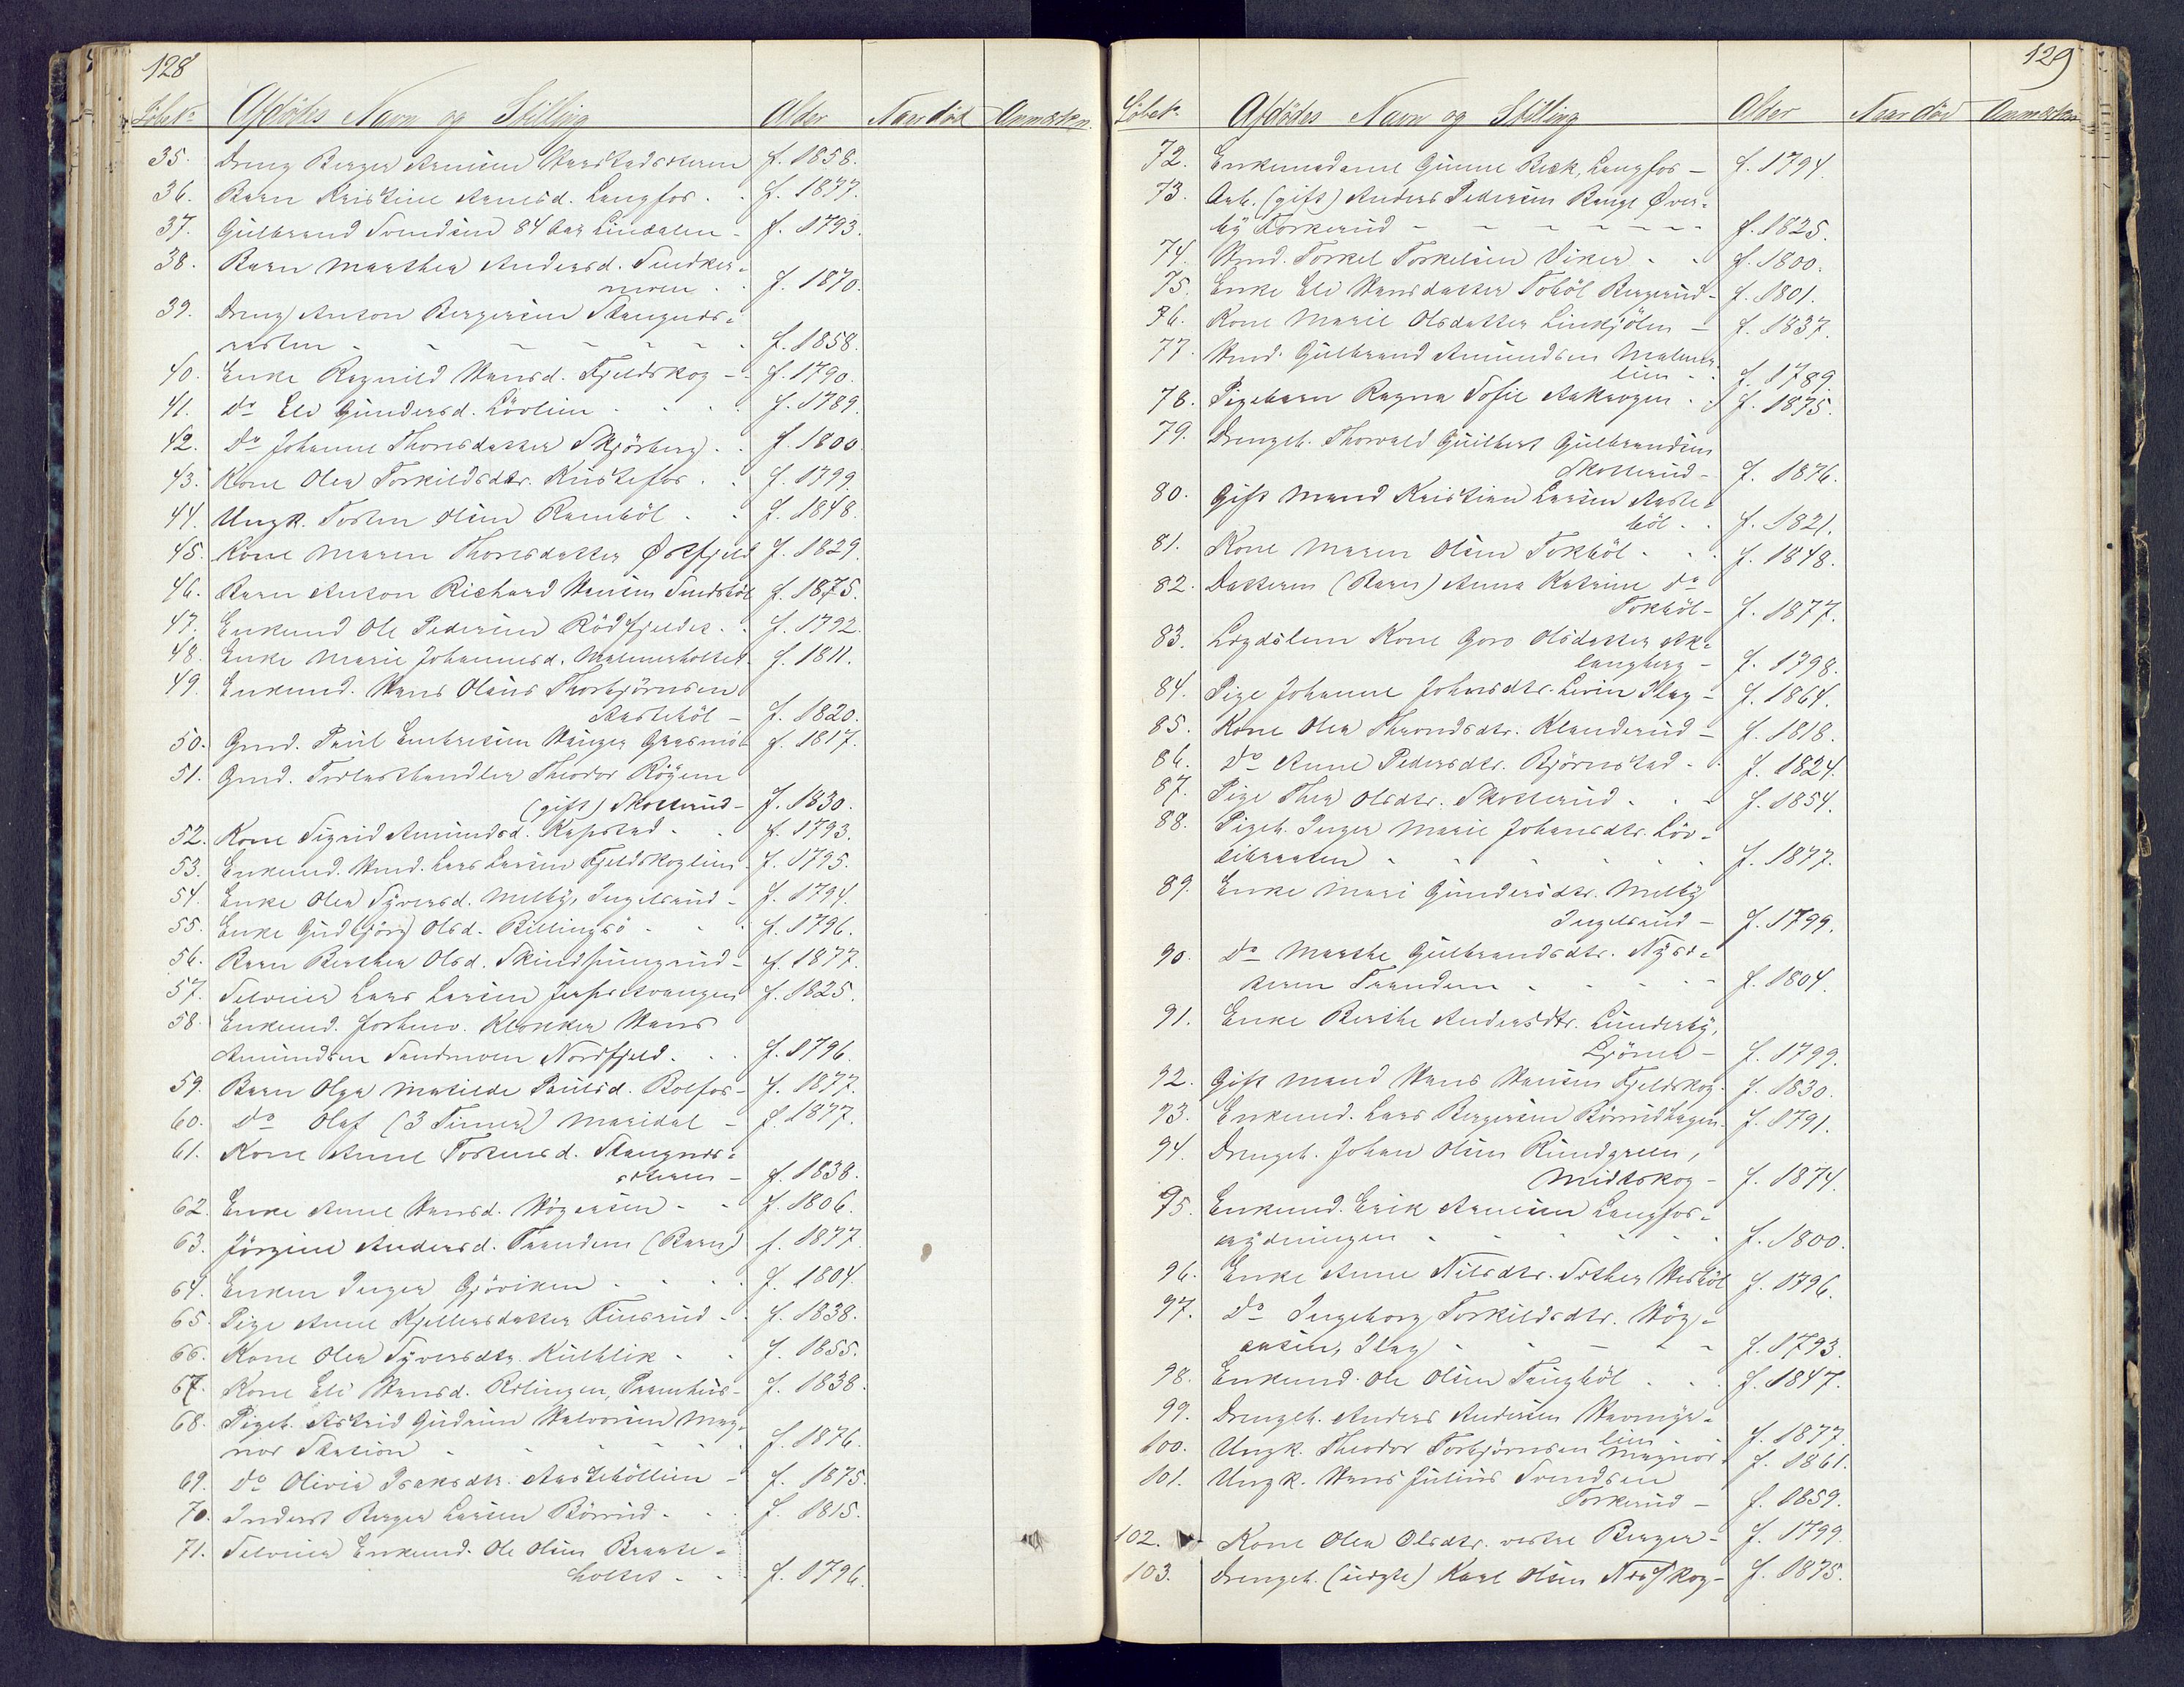 128
Løbe No Afdødes Navn og Stilling Alder Naar død Anmærkn.
35. Dreng Berger Arnesen f. 1858.
36. Barn Kristine Arnesd. Langfos f. 1877.
37. Gulbrand Svendsen 84 Aar Lindalen f. 1793.
38. Barn Marthea Andersd. Sindker-
moen f. 1870.
39. Dreng Anton Bergersen Skangnæs-
f. 1858.
40. Enke Ragnild Hansd. Fjeldskog f. 1790.
41. Do Eli Gundersd. Lövlien f. 1789.
42. Do Johanne Thoresdatter Skjörberg f. 1800
43. Kone Olea Torkildsdtr. Kustefos f. 1799.
44. Ungk. Tosten Olsen Ramböl f. 1848.
45. Kone Maren Thoresdatter Østfjeld f. 1829.
46. Barn Anton Richard Hansen f. 1875.
47. Enkemd Ole Pedersen Rödfjeldet f. 1792.
48. Enke Marie Johannesd. Malmerholtet f. 1811.
49. Enkemd. Hans Olaus Thorbjörnsen
Aasteböl f. 1820.
50. Gmd. Paul Embretsen f. 1817.
51. Gmd. Trælasthandler Theodor Röyem
(gift) Skotterud f. 1830.
52. Kone Sigrid Amundsd. Kapstad f. 1793.
53. Enkemd. Hmd. Lars Larsen Fjeldskoglien f. 1795.
54. Enke Olea Syversd. Melby, Ingelsrud f. 1794.
55. Enke Gudbjörg Olsd. Billingsö f. 1796.
56. Barn Berthea Olsd. Skindpungrud f. 1877.
57. Selveier Lars Larsen Jerpsetvangen f. 1825.
58. Enkemd. Forhenv. Klokker Hans
Amundsen Sandmoen Nordfjeld f. 1796.
59. Barn Olga Matilde Paulsd. Bolfos f. 1877.
60. Do Olaf (3 Timer) Maridal f. 1877.
61. Kone Anne Tostensd. Skangnæs-
f. 1838.
62. Enke Anne Hansd. Högaasen f. 1806.
63. Jörgine Andersd. Tranden (Barn) f. 1877
64. Enken Inger Gjöviken f. 1804.
65. Pige Anne Kjellersdatter Finsrud f. 1838.
66. Kone Olea Syversdtr. Kulblik f. 1855.
67. Kone Eli Hansd. Rolingen, Pramhus f. 1838.
68. Pigeb. Astrid Gudrun Halvorsen Mag-
nor Station f. 1876.
69. Do Olivia Isaksdtr. Aasteböllien f. 1875.
70. Inderst Berger Larsen Börrud f. 1815.
71. Selveier Enkemd. Ole Olsen Braate-
holtet f. 1796.
129
Løbe No Afdødes Navn og Stilling Alder Naar død Anmærkn.
72. Enkemadame Gunne Beck, Langfos f. 1794.
73. Arb. (gift) Anders Pedersen Øver-
by Torkerud f. 1825.
74. Hmd. Torkel Torkelsen Viker f. 1800.
75. Enke Eli Hansdatter Tohöl Bergerud f. 1801.
76. Kone Marie Olsdatter Linkjölen f. 1837.
77. Hmd. Gulbrand Amundsen Malmer-
lien f. 1789.
78. Pigebarn Ragna Sofie Aakrogen f. 1875.
79. Drengeb. Thorvald Guilbert Gulbrandsen
Skotterud f. 1876.
80. Gift Mand Kristian Larsen Aaste-
böl f. 1821.
81. Kone Maren Olsen Tokböl f. 1848.
82. Datteren (Barn) Anna Katrine Do
Tokböl f. 1877.
83. Lægdslem Kone Goro Olsdatter Ak-
langberg f. 1798.
84. Pige Johanne Johnsdtr. Lerin Slag f. 1864.
85. Kone Olea Throndsdtr. Klanderud f. 1818.
86. Do Anne Pedersdtr. Björnstad f. 1824.
87. Pige Thea Olsdtr. Skotterud f. 1854.
88. Pigeb. Inger Marie Johansdtr. Löv-
libraaten f. 1877.
89. Enke Mari Gundersdtr. Melby
Ingelsrud f. 1799.
90. Do Marthe Gulbrandsdtr.
Tranden f. 1804.
91. Enke Berthe Andersdtr. Lunderby,
f. 1799.
92. Gift Mand Hans Hansen Fjeldskog f. 1830.
93. Enkemd. Lars Bergersen Börrudhagen f. 1791.
94. Drengeb. Johan Olsen Rundgreen,
Midtskog f. 1874.
95. Enkemd. Erik Arnesen Langfos-
rydningen f. 1800.
96. Enke Anne Nilsdtr. f. 1796.
97. Do Ingeborg Torkildsdtr. Hög-
aasen, Slag f. 1793.
98. Enkemd. Ole Olsen Taugböl f. 1847.
99. Drengeb. Anders Andersen
lien f. 1877.
100. Ungk. Theodor Torbjörnsen Magnor f. 1861.
101. Ungk. Hans Julius Svendsen
Torkerud f. 1859.
102. Kone Olea Olsdtr. vestre Berger f. 1799.
103. Drengeb. (uægte) Karl Olsen Næfskog f. 1875.